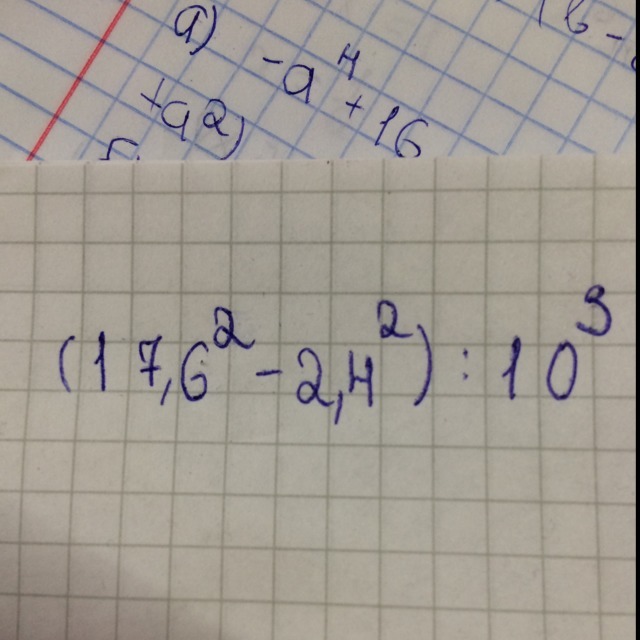 а)
-a⁴
16 -
+a²)
+16
(17,6² - 2,4²) : 10³